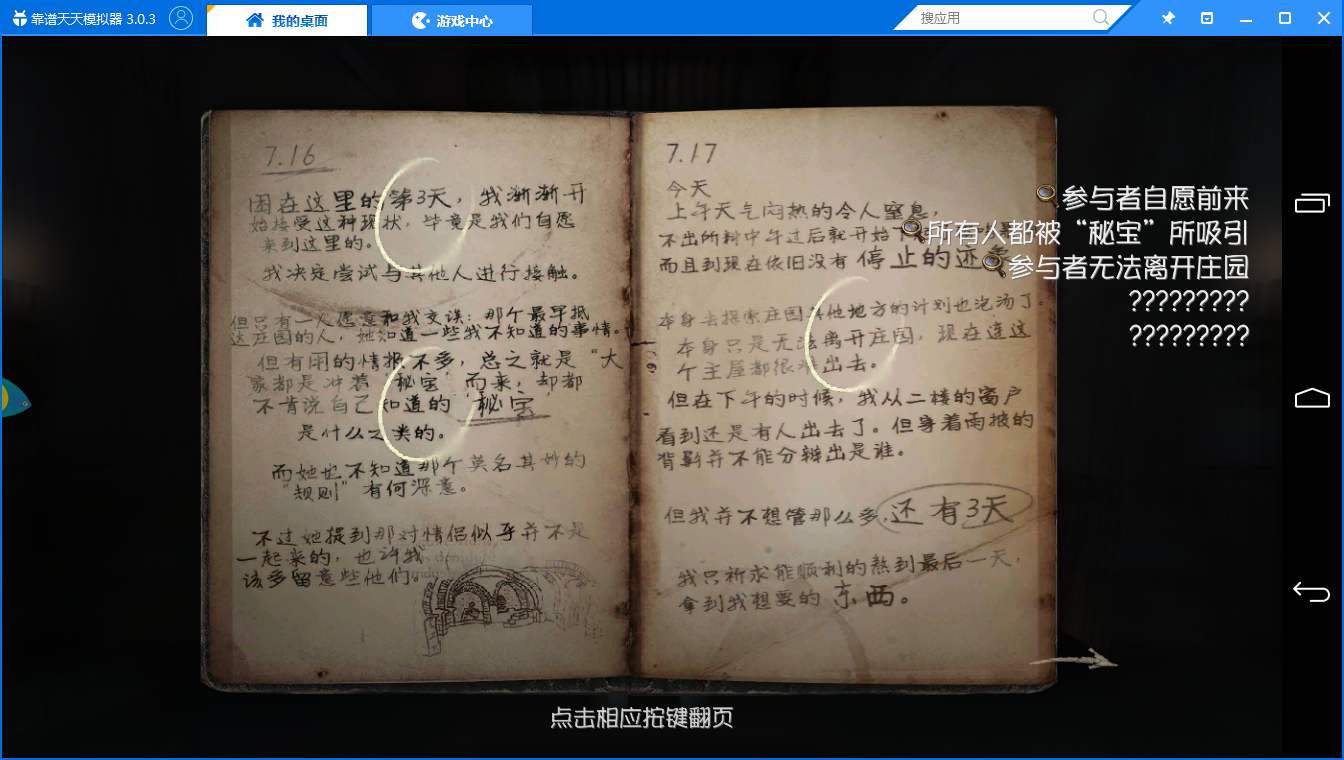 靠谱天天模拟器 3.0.3
我的桌面
游戏中心
搜应用
7.16
困在这里的第3天，我渐渐开
始接受这种现状，毕竟是我们自愿
来到这里的。
我决定尝试与其他人进行接触。
但只有一人愿意和我交谈：那个最早抵
达庄园的人，她知道一些我不知道的事情。
但有用的情报不多，总之就是“大
家都是冲着“秘宝”而来，却都
不肯说自己知道的“秘宝”
是什么之类的。
而她也不知道那个莫名其妙的
“规则”有何深意。
不过她提到那对情侣似乎并不是
一起来的，也许我
该多留意些他们。
7.17
今天
上午天气闷热的令人窒息，
不出所料中午过后就开始下
而且到现在依旧没有停止的迹象
本身去探索庄园其他地方的计划也泡汤了。
本身只是无法离开庄园，现在连这
个主屋都很难出去。
但在下午的时候，我从二楼的窗户
看到还是有人出去了。但穿着雨披的
背影并不能分辨出是谁。
但我并不想管那么多，还有3天
我只祈求能顺利的熬到最后一天，
拿到我想要的东西。
参与者自愿前来
所有人都被“秘宝”所吸引
参与者无法离开庄园
?????????
?????????
点击相应按键翻页